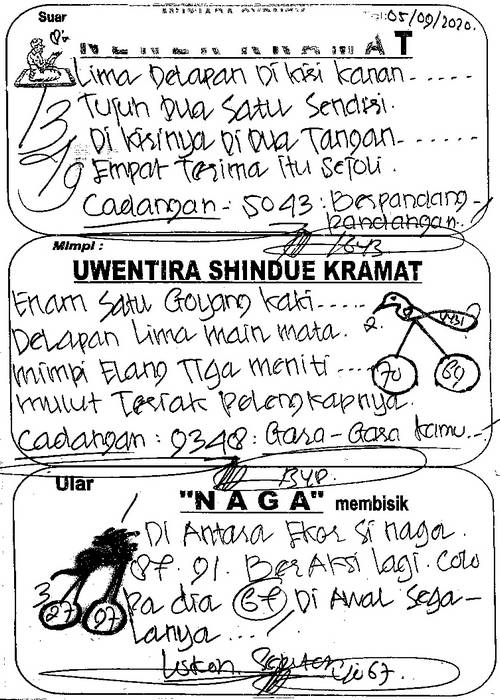 Suar
05/09/2020.
Lima Delapan Di kisi kanan.....
Tujuh Dua Satu Sendiri.
Di kisinya Di Dua Tangan......
Empat Terima itu Sejoli.
Cadangan - 5043: Berpandang-
pandangan.
1643
Mimpi :
UWENTIRA SHINDUE KRAMAT
Enam Satu Goyang kaki.....
Delapan Lima main mata. 2.
mimpi Elang Tiga meniti ....
70 69
mulut Teriak pelengkapnya.
Cadangan : 9348 : Gara-Gara kamu..
Ular
"NAGA" membisik
Di Antara Ekor Si naga.
87. 91. Ber Aksi lagi. Colo
3 27 97
Pa dia 67 Di Awal Sega-
lanya...
67.